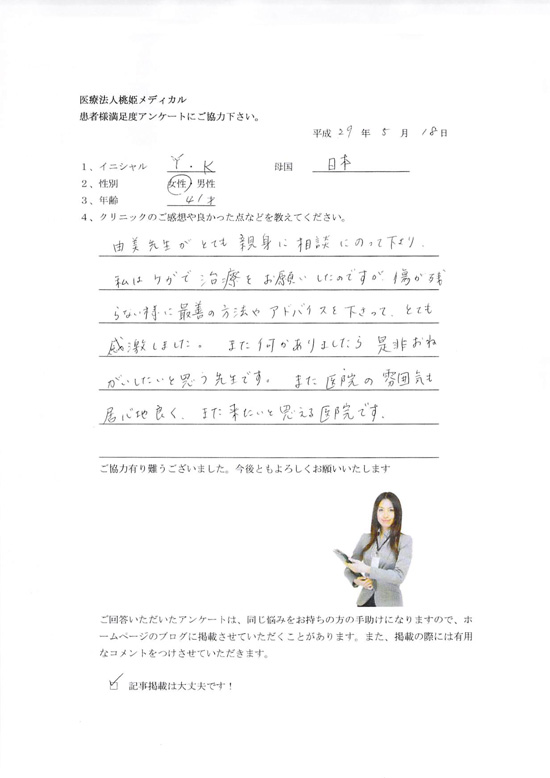 医療法人桃姫メディカル
患者様満足度アンケートにご協力下さい。
平成 29 年 5 月 18日
1、イニシャル Y・K 母国 日本
2、性別 女性・男性
3、年齢 41才
4、クリニックのご感想や良かった点などを教えてください。
由美先生がとても親身に相談にのって下さり、
私はケガで治療をお願いしたのですが、傷が残
らない様に最善の方法やアドバイスを下さって、とても
感激しました。 また何かありましたら是非おね
がいしたいと思う先生です。 また医院の雰囲気も
居心地良く、また来たいと思える医院です。
ご協力有り難うございました。今後ともよろしくお願いいたします
ご回答いただいたアンケートは、同じ悩みをお持ちの方の手助けになりますので、ホ
ームページのブログに掲載させていただくことがあります。また、掲載の際には有用
なコメントをつけさせていただきます。
☑ 記事掲載は大丈夫です！